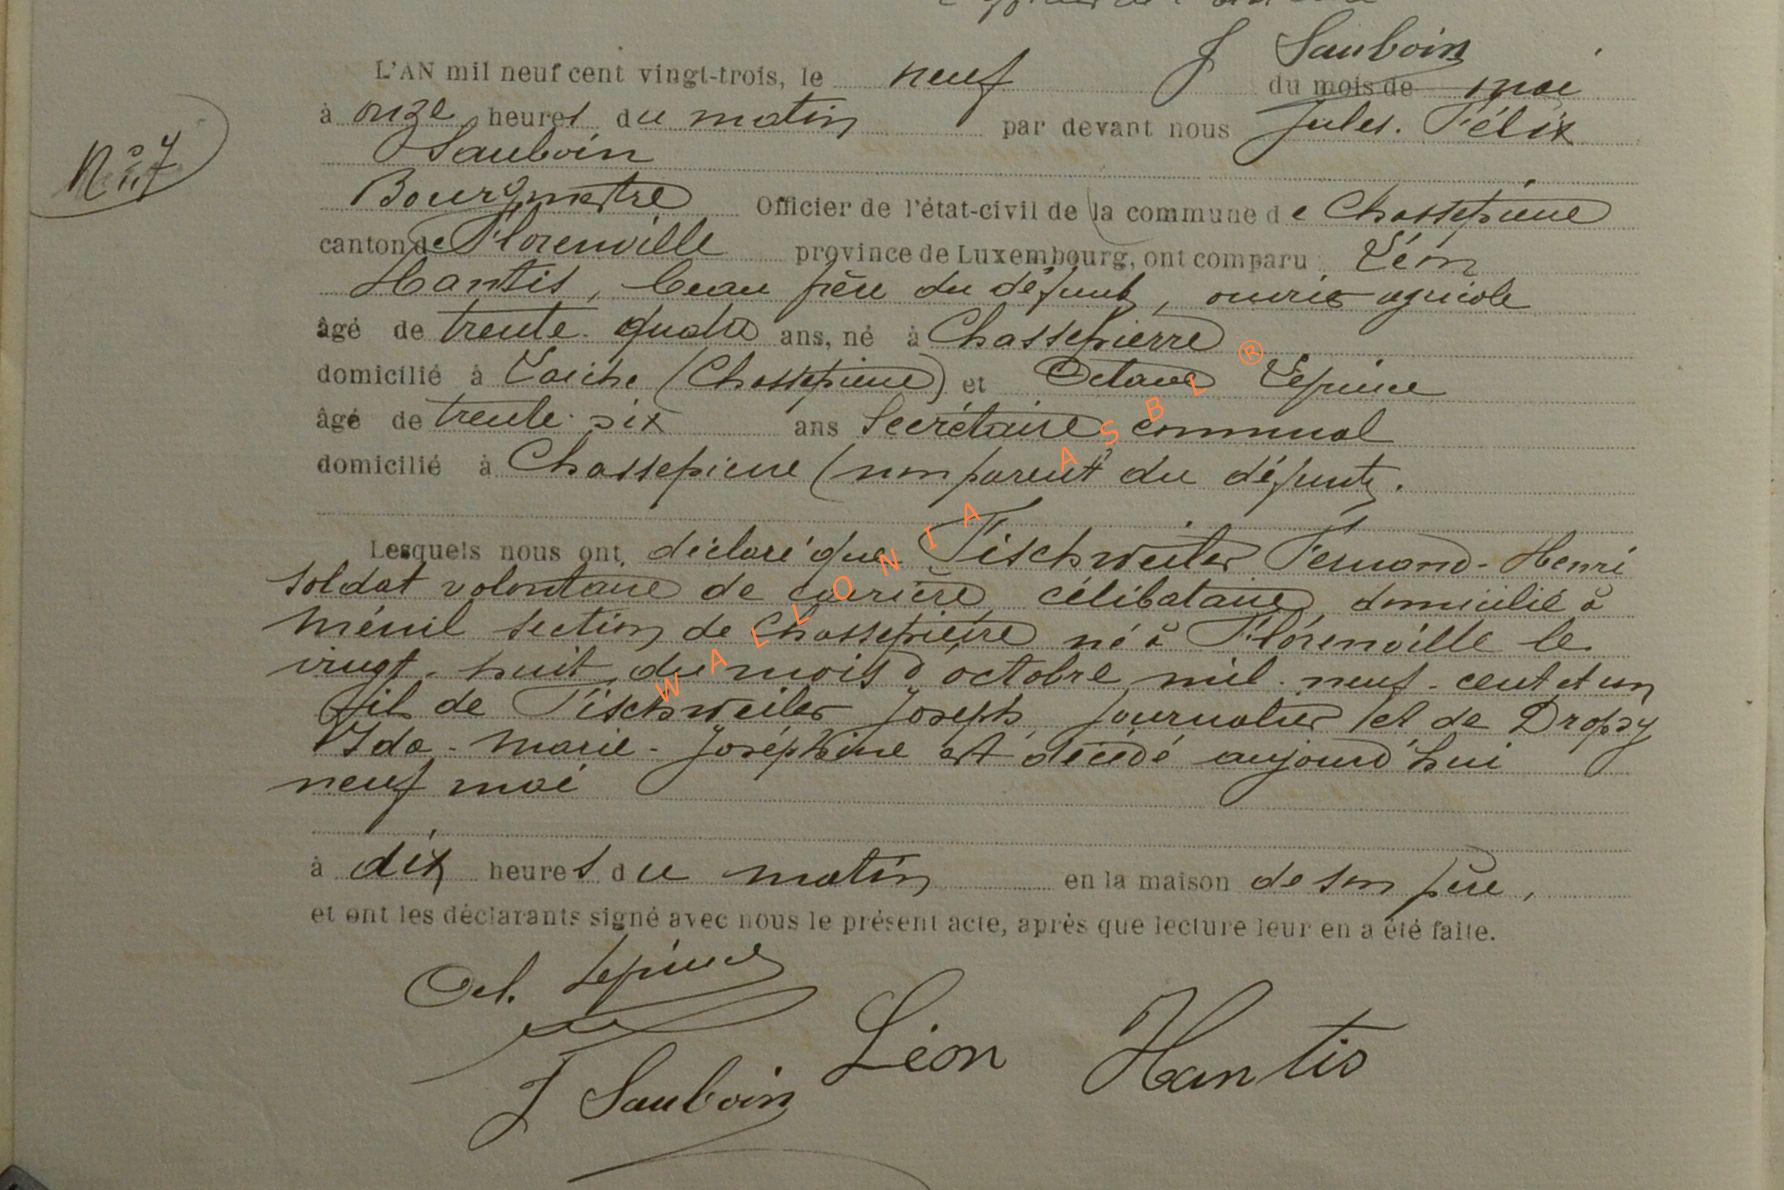 J Sauboin
L'AN mil neuf cent vingt-trois, le neuf du mois de mai
à onze heures du matin par devant nous Jules. Félix
Sauboin
N° 7
Bourgmestre Officier de l'état-civil de la commune de Chassepierre
canton de Florenville province de Luxembourg, ont comparu Léon
Hantis, beau frère du défunt, ouvrier agricole
âgé de trente quatre ans, né à Chassepierre
domicilié à Laiche (Chassepierre) et Octave Lepince
âgé de trente six ans Secrétaire communal
domicilié à Chassepierre (non parent du défunt.
Lesquels nous ont déclaré que Tischweiler Fernand-Henri
soldat volontaire de carrière, célibataire, domicilié à
Ménil section de Chassepierre né à Florenville le
vingt-huit du mois d'octobre mil-neuf-cent et un
fils de Tischweiler Joseph, journalier et de Dropsy
Ida-Marie-Joséphine est décédé aujourd'hui
neuf mai
à dix heures du matin en la maison de son père,
et ont les déclarants signé avec nous le présent acte, après que lecture leur en a été faite.
Oct. Lepince
Léon Hantis
J Sauboin
WALLONIA ASBL ®